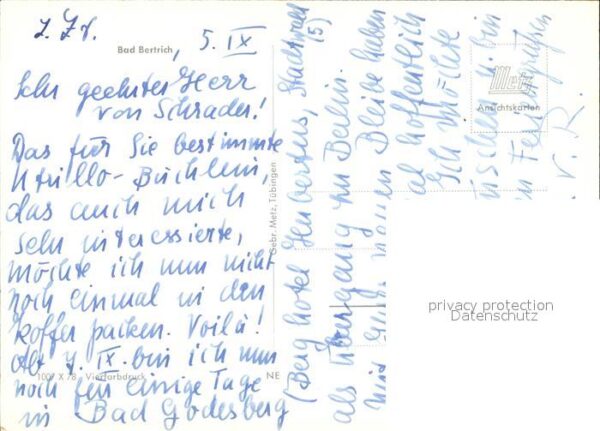 z. Zt.
Bad Bertrich, 5. IX
Sehr geehrter Herr
von Schrader!
Das für Sie bestimmte
Utrillo-Büchlein,
das auch mich
sehr interessierte,
möchte ich nun nicht
noch einmal in den
Koffer packen. Voilà!
Ab 7. IX. bin ich nun
noch für einige Tage
in Bad Godesberg
(Berghotel Hubertus, Stadtwald
(5)
als Übergang zu Berlin.
Bleibe haben
hoffentlich
Ich möchte
bin
in
v. R.
Metz
Ansichtskarten
Gebr. Metz, Tübingen
1007 X 78 Vierfarbdruck
NE
privacy protection
Datenschutz